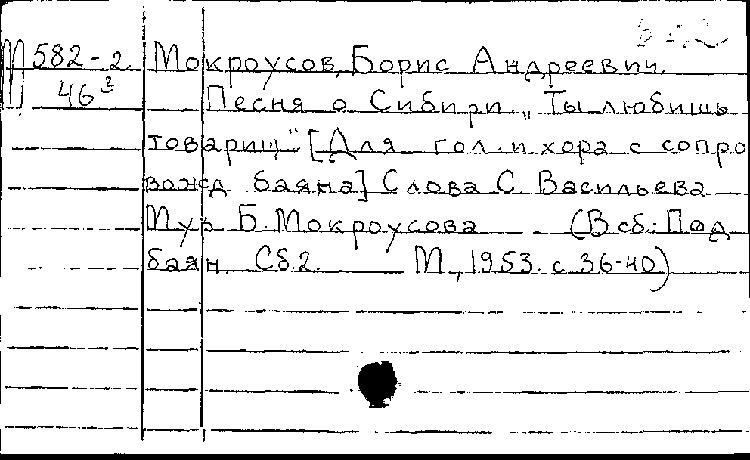 М 582-2 Мокроусов, Борис Андреевич.
46³ Песня о Сибири „Ты любишь
товарищ" [Для гол. и хора с сопро
вожд баяна] Слова С. Васильева
Муз Б. Мокроусова (В сб.: Под
баян. Сб 2. М., 1953. с 36-40)